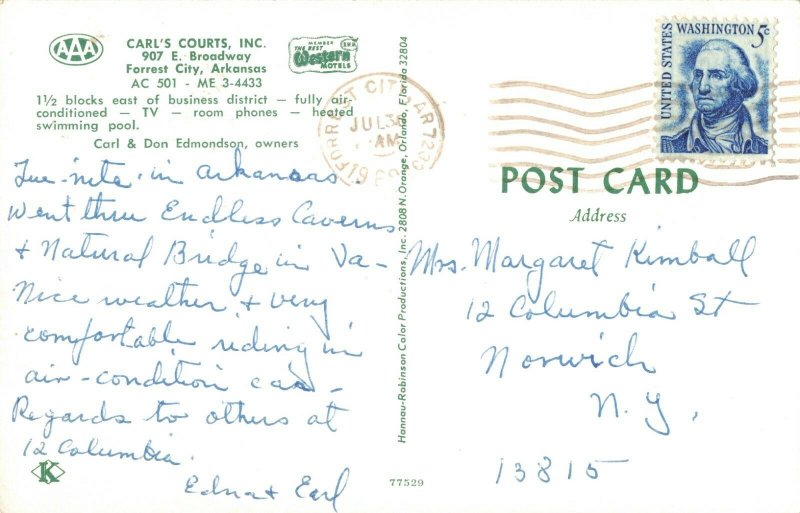 AAA
CARL'S COURTS, INC.
907 E. Broadway
Forrest City, Arkansas
AC 501 - ME 3-4433
MEMBER
THE BEST
Western
MOTELS
1½ blocks east of business district — fully air-
conditioned — TV — room phones — heated
swimming pool.
Carl & Don Edmondson, owners
Tue-nite-in Arkansas.
Went thru Endless Caverns
& Natural Bridge in Va-
Nice weather & very
comfortable riding in
air-condition car-
Regards to others at
12 Columbia.
Edna & Earl
K
Hannau-Robinson Color Productions, Inc. 2808 N. Orange, Orlando, Florida 32804
77529
FORREST CITY, AR 723
JUL
AM
19
UNITED STATES
WASHINGTON 5c
POST CARD
Address
Mrs. Margaret Kimball
12 Columbia St
Norwich
N.Y.
13815